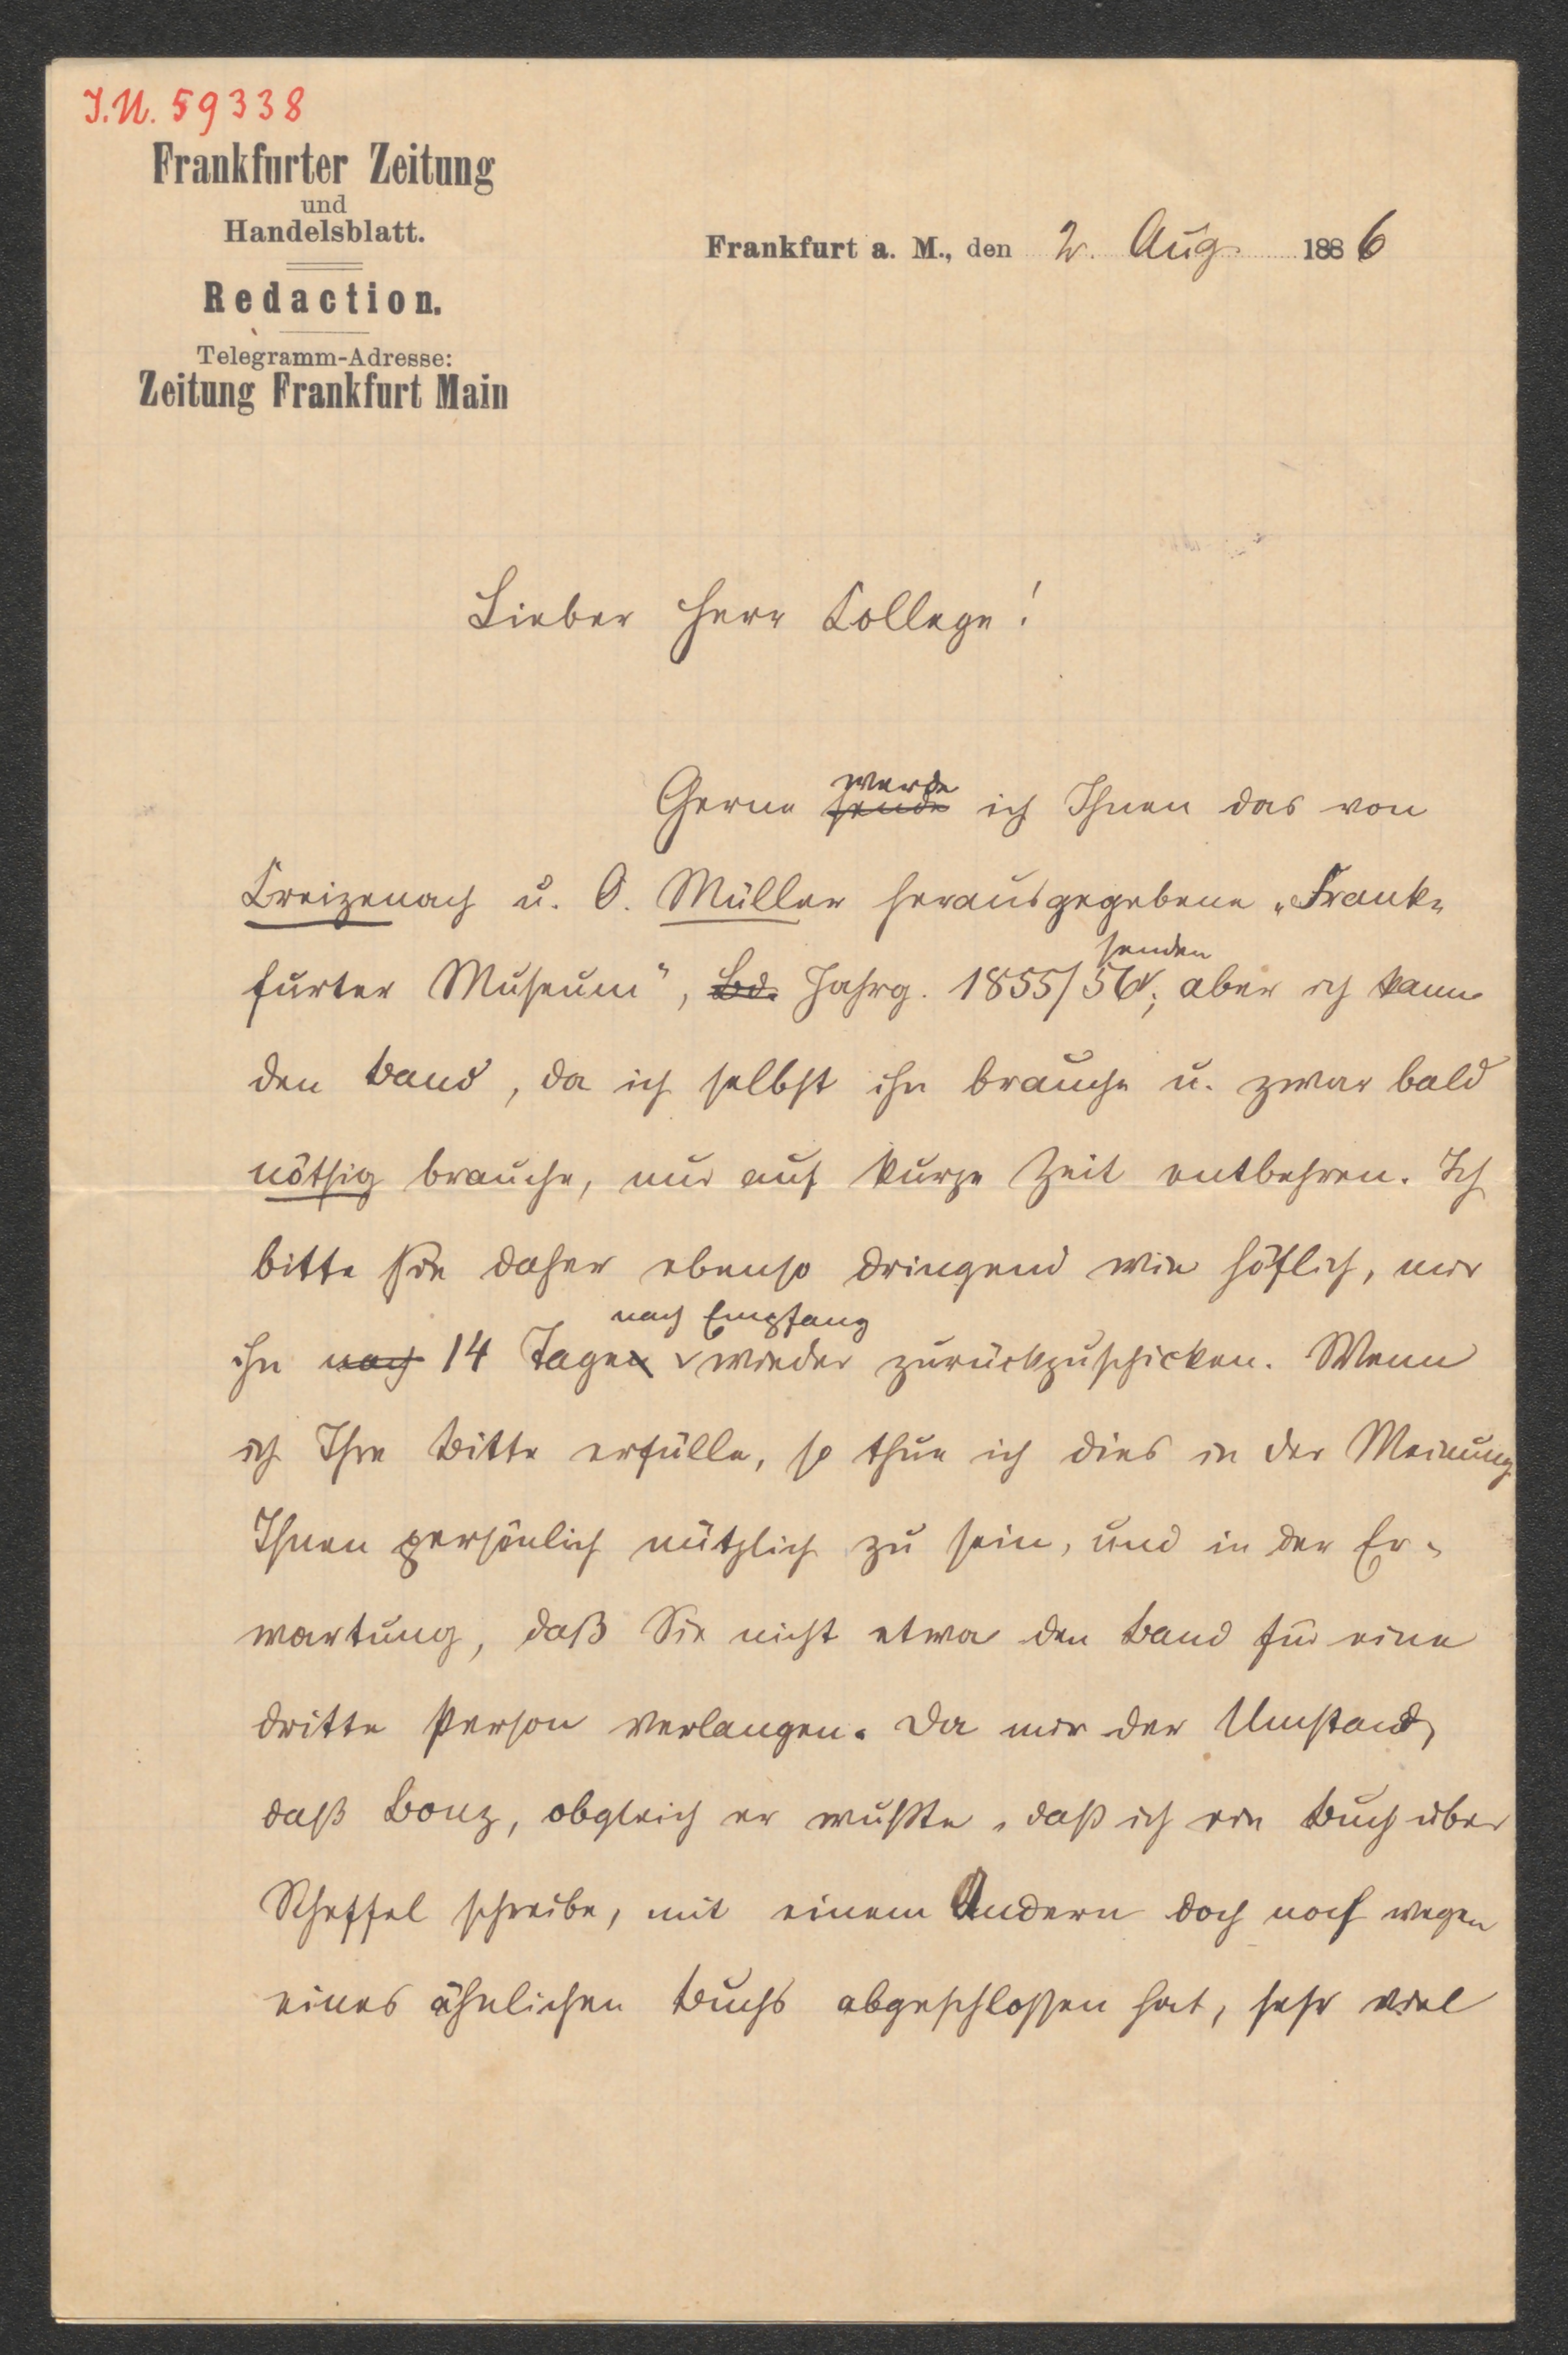 I.N. 59338
Frankfurter Zeitung
und
Handelsblatt.
Redaction.
Telegramm-Adresse:
Zeitung Frankfurt Main
Frankfurt a. M., den 2. Aug. 1886
Lieber Herr College!
werde
Gerne sende ich Ihnen das von
Creizenach u. O. Müller herausgegebene „Frank-
senden
furter Museum“, Bd. Jahrg. 1855/56, aber ich kann
den Band, da ich selbst ihn brauche u. zwar bald
nöthig brauche, nur auf kurze Zeit entbehren. Ich
bitte Sie daher ebenso dringend wie höflich, mir
nach Empfang
ihn nach 14 Tagen wieder zurückzuschicken. Wenn
ich Ihre Bitte erfülle, so thue ich dies in der Meinung
Ihnen persönlich nützlich zu sein, und in der Er-
wartung, daß Sie nicht etwa den Band für eine
dritte Person verlangen. Da mir der Umstand,
daß Bonz, obgleich er wußte, daß ich ein Buch über
Scheffel schreibe, mit einem Andern doch noch wegen
eines ähnlichen Buchs abgeschlossen hat, sehr viel